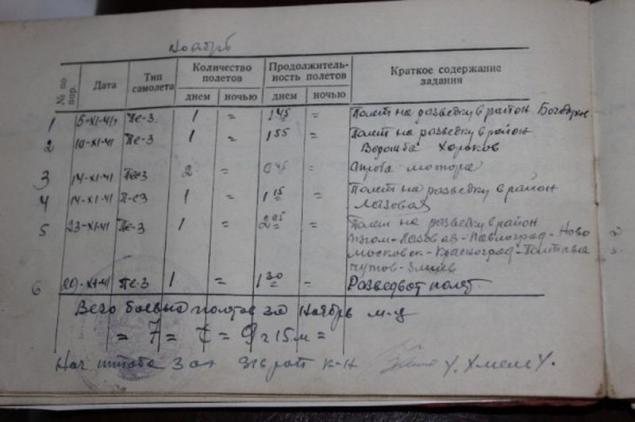 Ноябрь
№ по пор. Дата Тип самолета Количество полетов Продолжительность полетов Краткое содержание задания
днем ночью днем ночью
1 5-XI-41 Пе-3 1 = 1 45 = Полет на разведку в район Богодухов
2 10-XI-41 Пе-3 1 = 1 55 = Полет на разведку в район
Водолага Харьков
3 14-XI-41 Пе-3 2 = 0 45 = Проба мотора
4 14-XI-41 Пе-3 1 = 1 15 = Полет на разведку в район
Лозовая
5 23-XI-41 Пе-3 1 = = Полет на разведку в район
Изюм-Лозовая-Павлоград-Ново
московск-Красноград-Полтава
Чугуев-Змиев
6 Пе-3 1 = 1 30 = полет.
Всего боевых полетов за Ноябрь м-ц
= 7 = = 9 ч 15 м =
Нач штаба 3 к-н